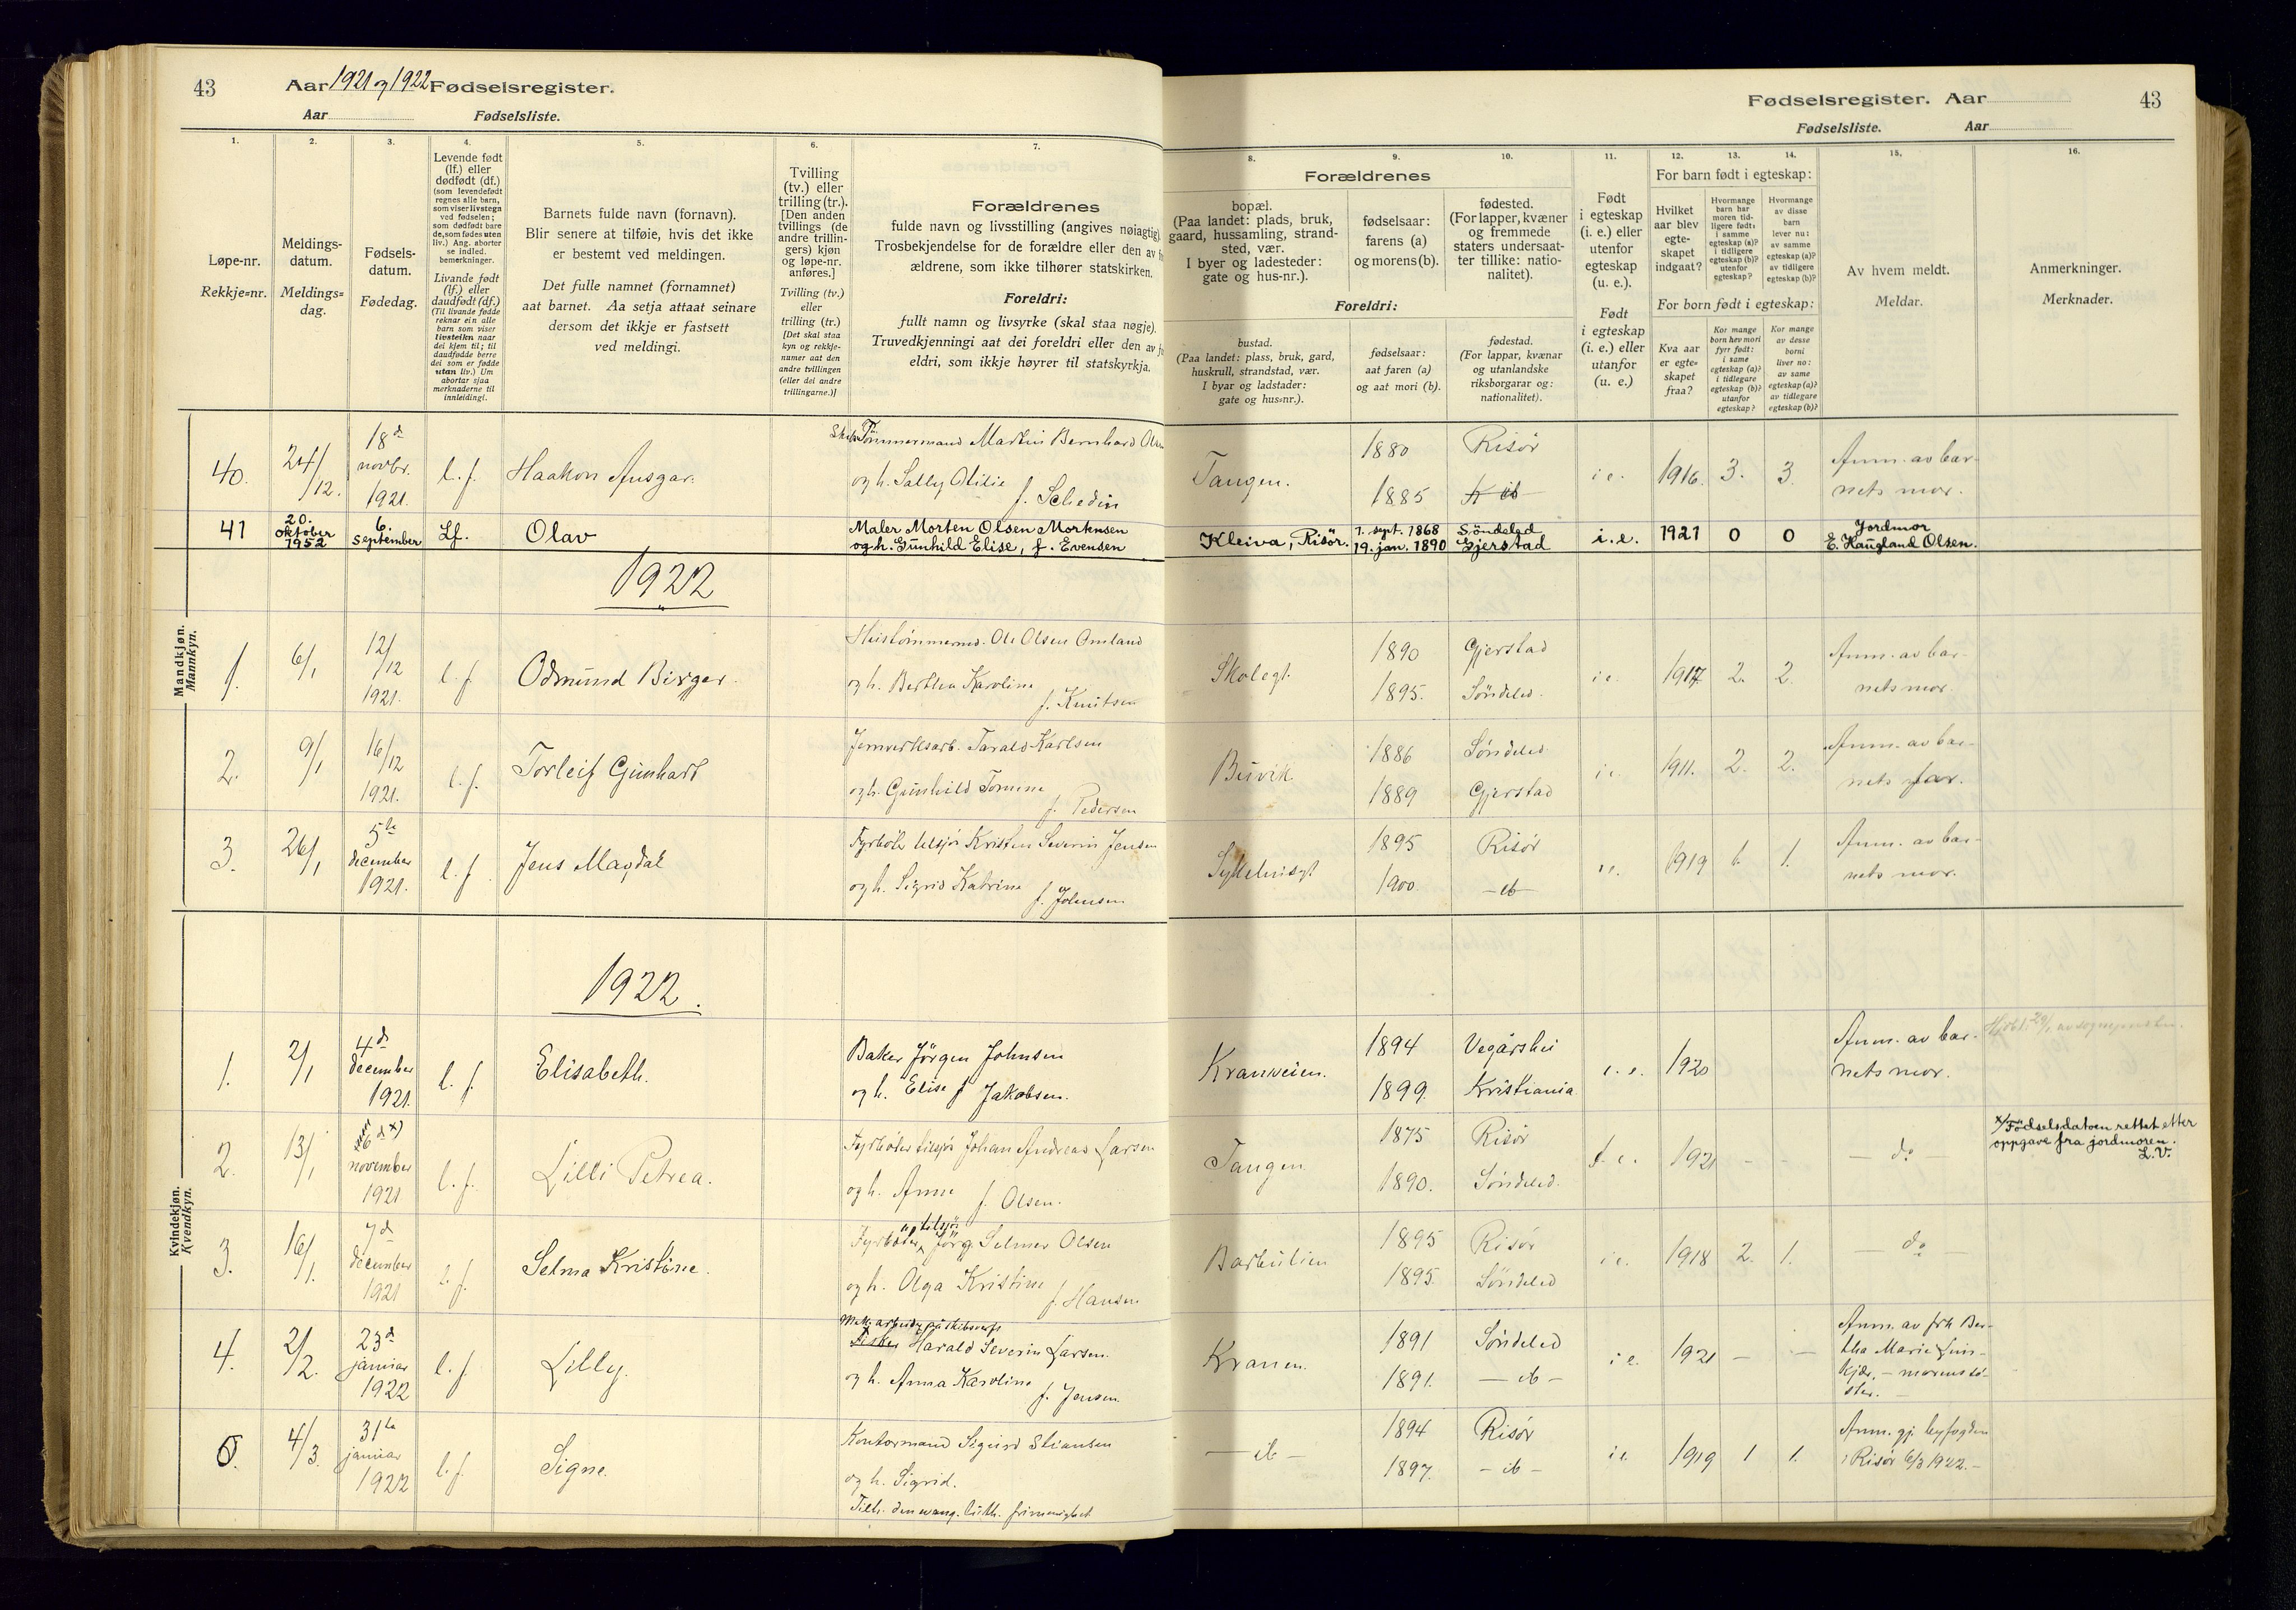 43
Aar 1921 og 1922 Fødselsregister.
Aar Fødselsliste.
Fødselsregister. Aar
43
Fødselsliste. Aar
1.
Løpe-nr.
Rekkje=nr.
2.
Meldings-
datum.
Meldings=
dag.
3.
Fødsels-
datum.
Fødedag.
4.
Levende født
(lf.) eller
dødfødt (df.)
(som levendefødt
regnes alle barn,
som viser livstegn
ved fødselen;
som dødfødt bare
de, som fødes uten
liv.) Ang. aborter
se indled.
bemerkninger.
Livande født
(lf.) eller
daudfødt (df.)
(Til livande fødde
reknar ein alle
barn som viser
livsteikn naar
dei kjem til; til
daudfødde berre
dei som er fødde
utan liv.) Um
abortar sjaa
merknaderne til
innleidingi.
5.
Barnets fulde navn (fornavn).
Blir senere at tilføie, hvis det ikke
er bestemt ved meldingen.
Det fulle namnet (fornamnet)
aat barnet. Aa setja attaat seinare
dersom det ikkje er fastsett
ved meldingi.
6.
Tvilling
(tv.) eller
trilling (tr.).
[Den anden
tvillings (de
andre trillin-
gers) kjøn
og løpe-nr.
anføres.]
Tvilling (tv.)
eller
trilling (tr.)
[Det skal staa
kyn og rekkje-
numer aat den
andre tvillingen
(eller dei andre
trillingarne.)]
7.
Forældrenes
fulde navn og livsstilling (angives nøiagtig).
Trosbekjendelse for de forældre eller den av f
ældrene, som ikke tilhører statskirken.
Foreldri:
fullt namn og livsyrke (skal staa nøgje).
Truvedkjenningi aat dei foreldri eller den av f
eldri, som ikkje høyrer til statskyrkja.
8.
Forældrenes
bopæl.
(Paa landet: plads, bruk,
gaard, hussamling, strand-
sted, vær.
I byer og ladesteder:
gate og hus-nr.).
Foreldri:
bustad.
(Paa landet: plass, bruk, gard,
huskrull, strandstad, vær.
I byar og ladstader:
gate og hus=nr.).
9.
fødselsaar:
farens (a)
og morens (b).
fødselsaar:
aat faren (a)
og aat mori (b).
10.
fødested.
(For lapper, kvæner
og fremmede
staters undersaat-
ter tillike: natio-
nalitet).
fødestad.
(For lappar, kvænar
og utanlandske
riksborgarar og:
nationalitet).
11.
Født
i egteskap
(i. e.) eller
utenfor
egteskap
(u. e.).
Født
i egteskap
(i. e.) eller
utanfor
(u. e.)
12.
For barn født i egteskap:
Hvilket
aar blev
egte-
skapet
indgaat?
For born født i egteskap:
Kva aar
er egte=
skapet
fraa?
13.
Hvormange
barn har
moren tid-
ligere født:
i samme
egteskap (a)?
i tidligere
egteskap (b)?
utenfor
egteskap?
Kor mange
born hev mori
fyrr født:
i same
egteskap (a)?
i tidlegare
egteskap (b)?
utanfor
egteskap?
14.
Hvormange
av disse
barn
lever nu:
av samme
egteskap (a)?
av tidligere
egteskap (b)?
Kor mange
av desse
borni
liver no:
av same
egteskap (a)?
av tidlegare
egteskap (b)?
15.
Av hvem meldt.
Meldar.
16.
Anmerkninger.
Merknader.
Mandkjøn.
Mannkyn.
40. 24/12. 18d novbr. 1921. l. f. Haakon Ansgar.
Tømmermand Martin Bernhard Olsen
og h. Sally Otilie f. Schedin
Tangen. 1880 Risør
1885 ib
i e. 1916. 3. 3. Anm. av bar-
nets mor.
41 20. oktober 1952 6. september Lf. Olav
Maler Morten Olsen Mortensen
og h. Gunhild Elise, f. Evensen
Kleiva, Risör. 7. sept. 1868 Söndeled
19. jan. 1890 Gjerstad
i. e. 1921 0 0 Jordmor
E. Haugland Olsen.
1922
1. 6/1 12/12 1921. l. f. Odmund Birger.
Hustømmermd. Ole Olsen Omland
og h. Berthea Karoline f. Knutsen
Skolegt. 1890 Gjerstad
1895. Söndeled.
i e. 1917 2. 2. Anm. av bar-
nets mor.
2. 9/1 16/12 1921. l. f. Torleif Gunhart
Jernverksarb. Tarald Karlsen
og h. Gunhild Tomine f. Pedersen
Buvik 1886 Søndeled
1889 Gjerstad
i e. 1911. 2. 2. Anm. av bar-
nets far.
3. 26/1 5te december 1921. l. f. Jens Magdal
Fyrböt. tilsjös Kristen Severin Jensen
og h. Sigrid Katrine f. Johnsen
Sykehusgt 1895 Risør
1900 — ib —
i e. 1919 1. 1. Anm. av bar-
nets mor.
Kvindekjøn.
Kvendkyn.
1922.
1. 2/1 4d december 1921. l. f. Elisabeth.
Baker Jörgen Johnsen
og h. Elise f Jakobsen.
Kranveien. 1894 Vegårshei
1899. Kristiania
i. e. 1920 Anm. av bar-
nets mor.
2. 13/1 26d x) november 1921. l. f. Lilli Petrea.
Fyrböter tilsjös Johan Andreas Larsen
og h. Anne f. Olsen.
Tangen 1875 Risør
1890. Söndeled.
i e. 1921 - - — do —
x/ Födselsdatoen rettet etter
oppgave fra jordmoren.
L.V.
3. 16/1. 7d december 1921 l. f. Selma Kristine.
Fyrböter tilsjös Jörg. Selmer Olsen
og h. Olga Kristine f. Hansen
Barbulien 1895 Risør
1895. Söndeled
i e. 1918 2. 1. — do
4. 2/2. 23d januar 1922 l. f. Lilly.
Mek. arbeider på skibsverft
Fisker Harald Severin Larsen.
og h. Anna Karoline f. Jensen.
Kranen. 1891 Söndeled
1891. — ib —
i e. 1921 — — Anm. av frk Ber-
tha Marie Lins-
kjær. - morens sö-
ster. —
5. 4/3. 31te januar 1922 l. f. Signe.
Kontormand Sigurd Stiansen
og h. Sigrid.
Tilh. den evang. luth. frimenighet
— ib — 1894 Risør
1897. — ib —
i e. 1919 1 1. Anm. gj. byfogden
i Risör 6/3 1922. —